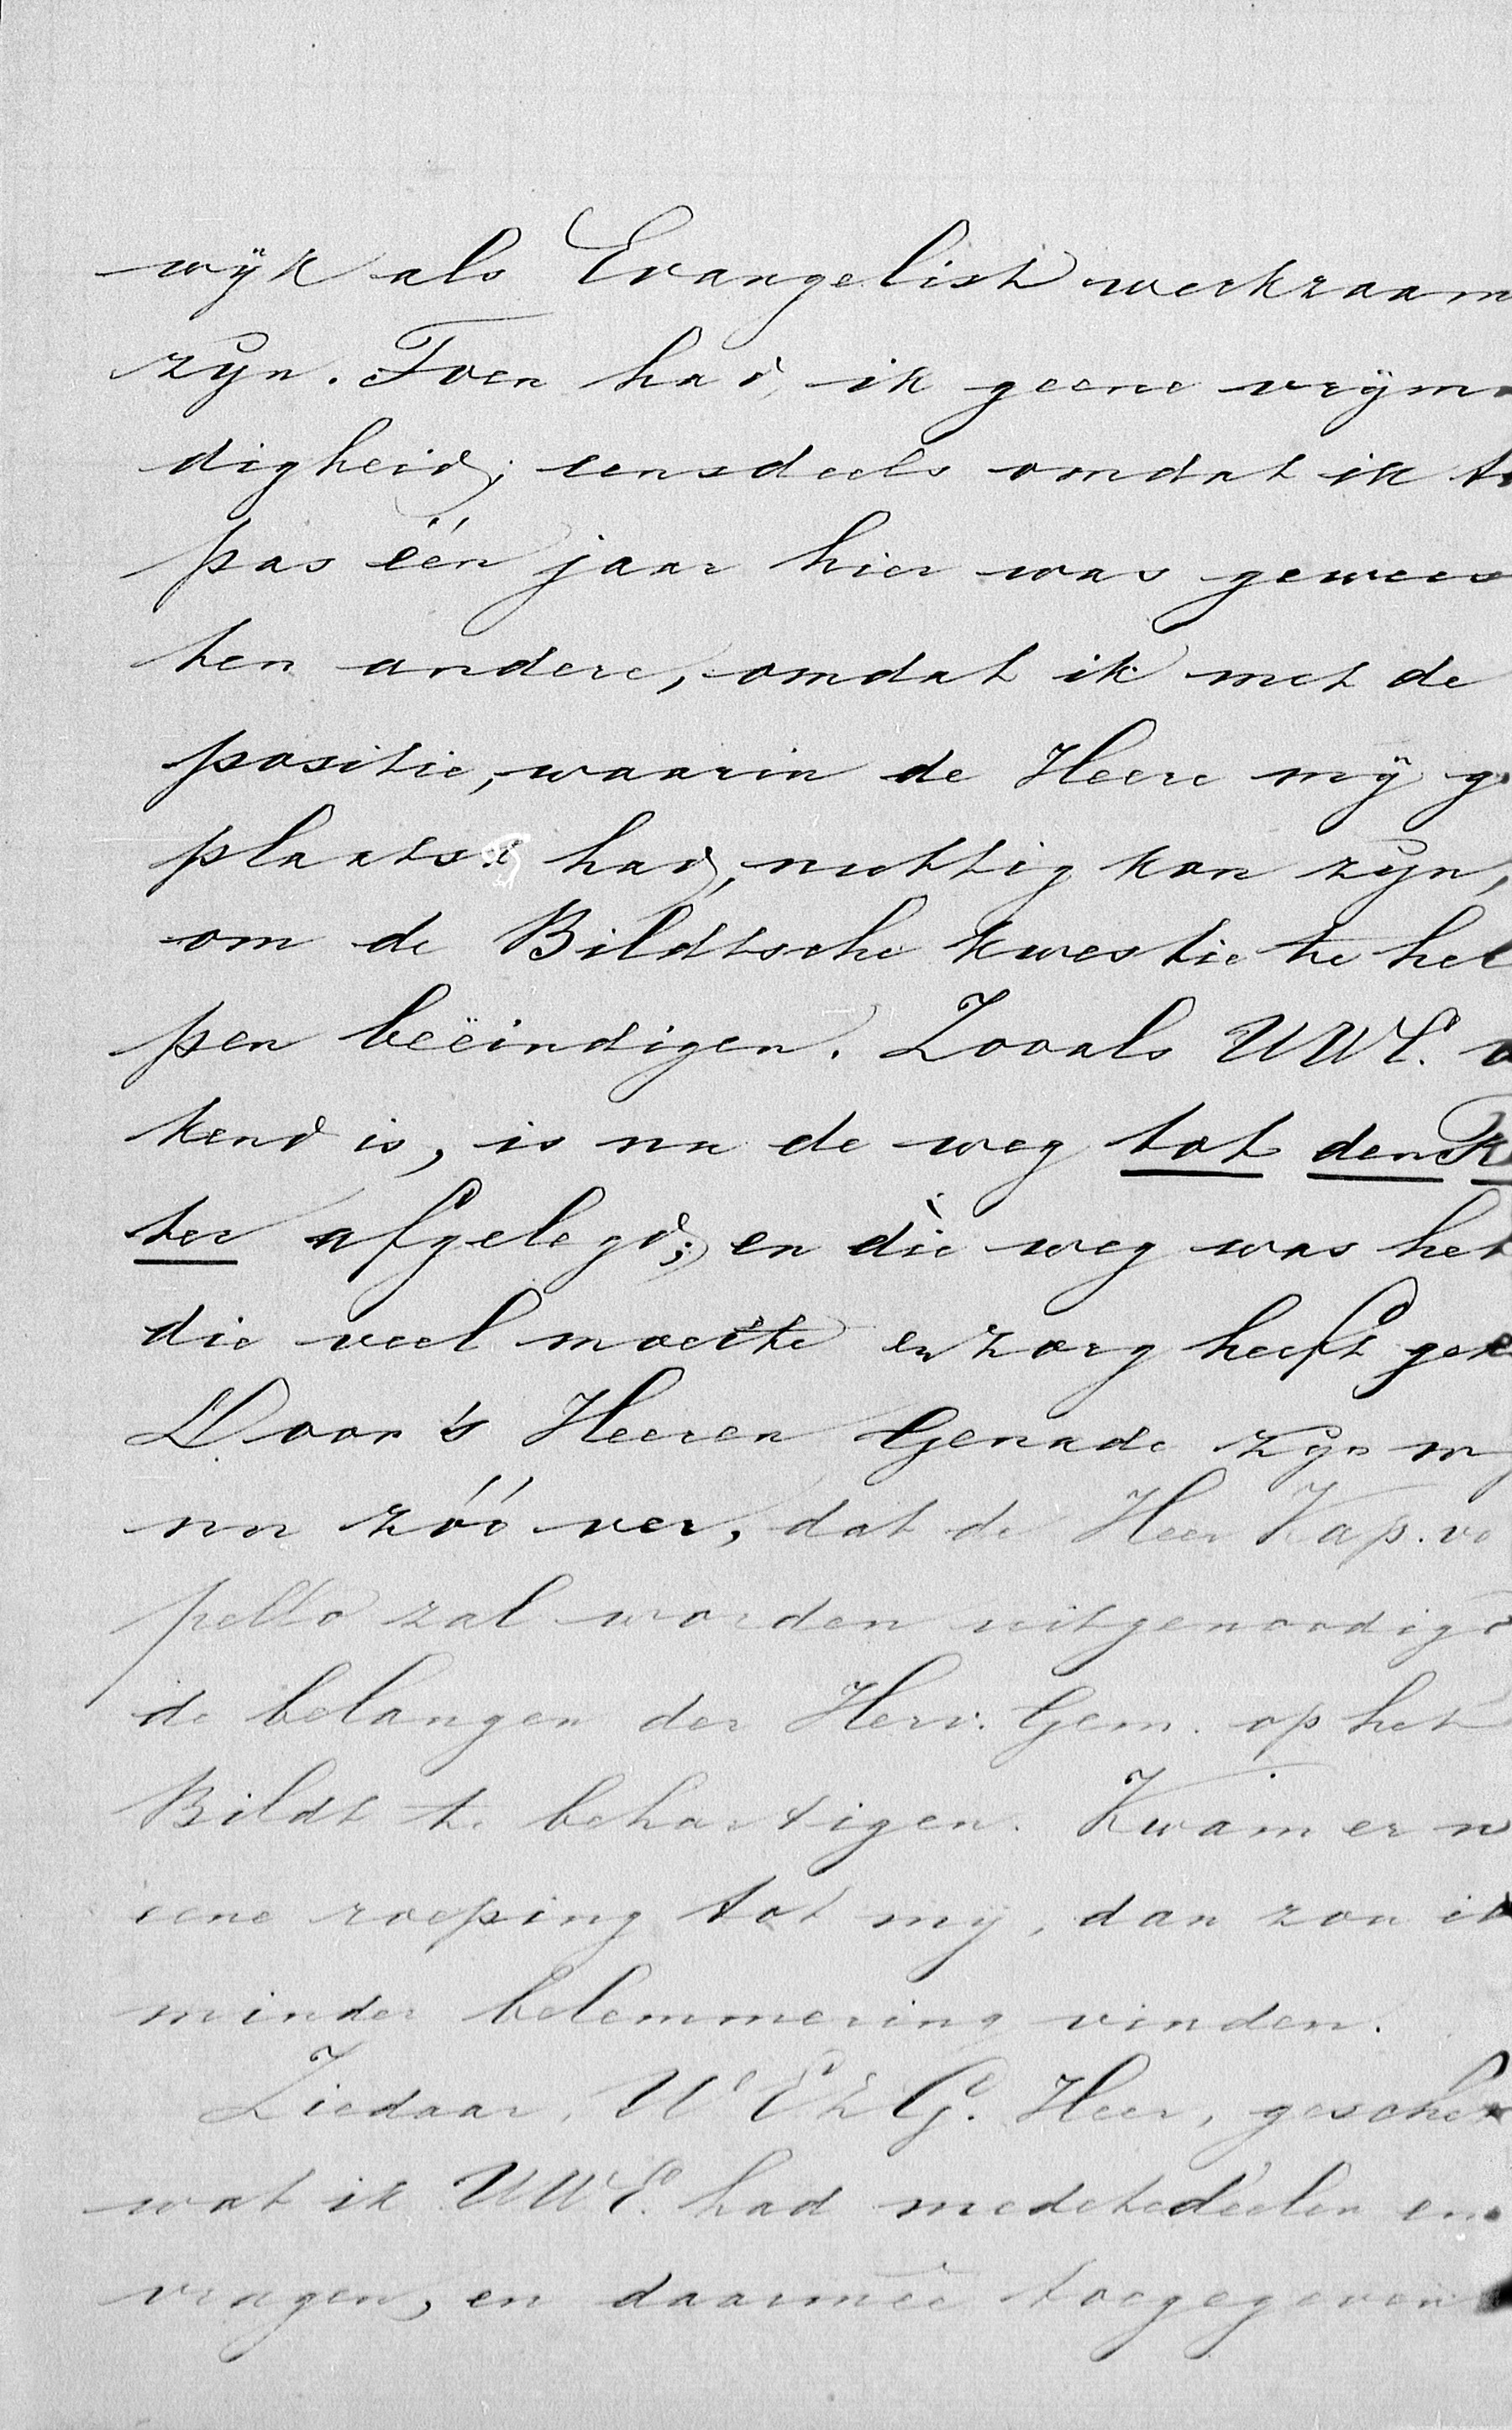 wijk als Evangelist werkzaam
zijn. Toen had ik geene vrijm
digheid; eensdeels omdat ik t
pas één jaar hier was gewees
ten andere, omdat ik met de
positie, waarin de Heere mij g
plaatst had, nuttig kon zijn,
om de Bildtsche kwestie te hel
pen beëindigen. Zooals UWE.
kend is, is nu de weg tot den
ter afgelegd; en díe weg was het
die veel moeite en zorg heeft ge
Door 's Heeren Genade zijn
nu zóó ver, dat de Heer Kap. v
pello zal worden uitgenoodigd
de belangen der Herv. Gem. op het
Bildt te behartigen. Kwam er n
eene roeping tot mij, dan zou ik
minder belemmering vinden.
Ziedaar, WEZG. Heer, gesche
wat ik UWE. had medetedeelen en
vragen, en daarmeê toegegeven